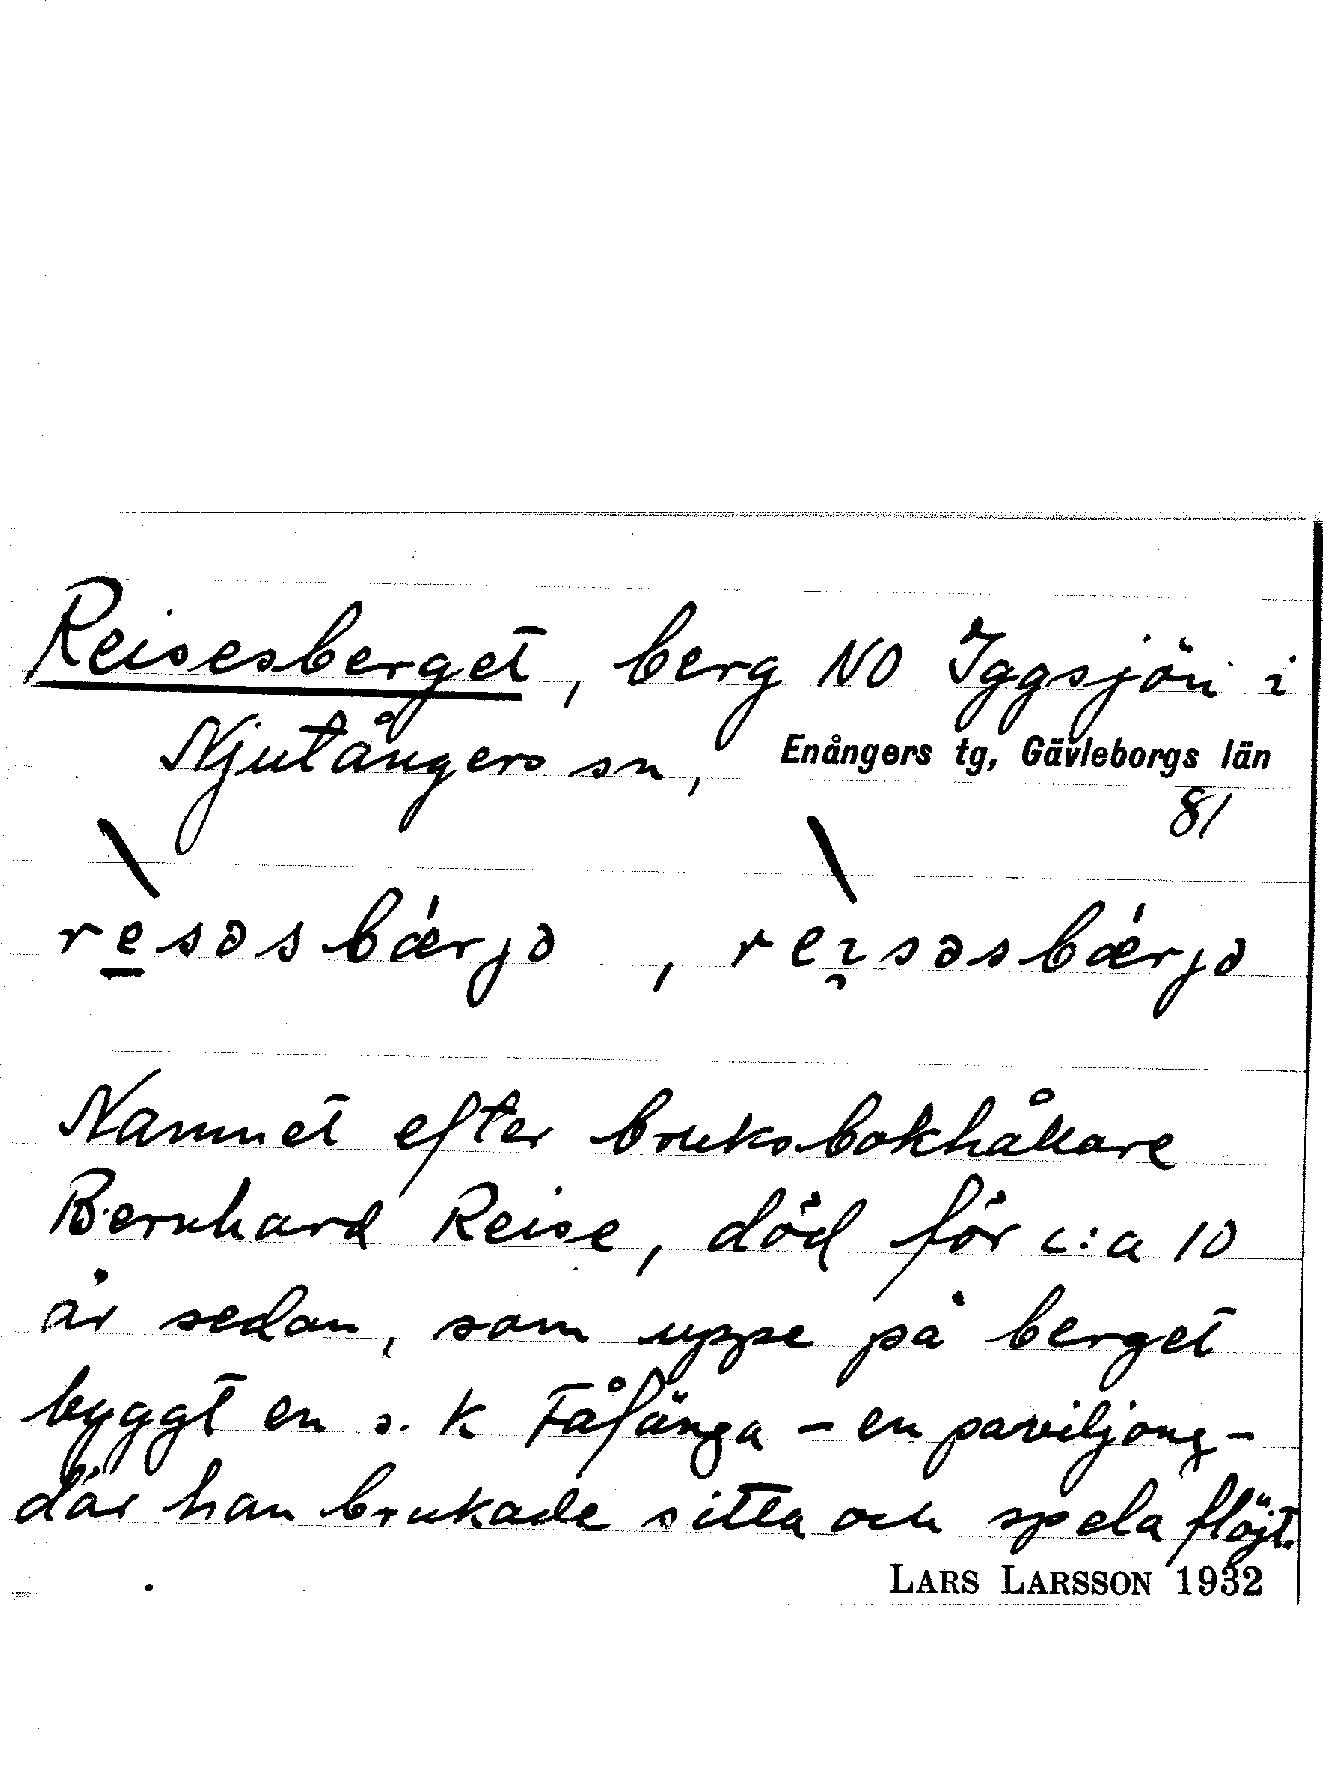 Reisesberget, berg NO Iggsjön i
Njutångers sn, Enångers tg, Gävleborgs län
81
re̲səsbǽrjə , reı̯səsbǽrjə
Namnet efter bruksbokhållare
Bernhard Reise, död för c:a 10
år sedan, som uppe på berget
byggt en s. k Fåfänga – en paviljong –
där han brukade sitta och spela flöjt.
LARS LARSSON 1932